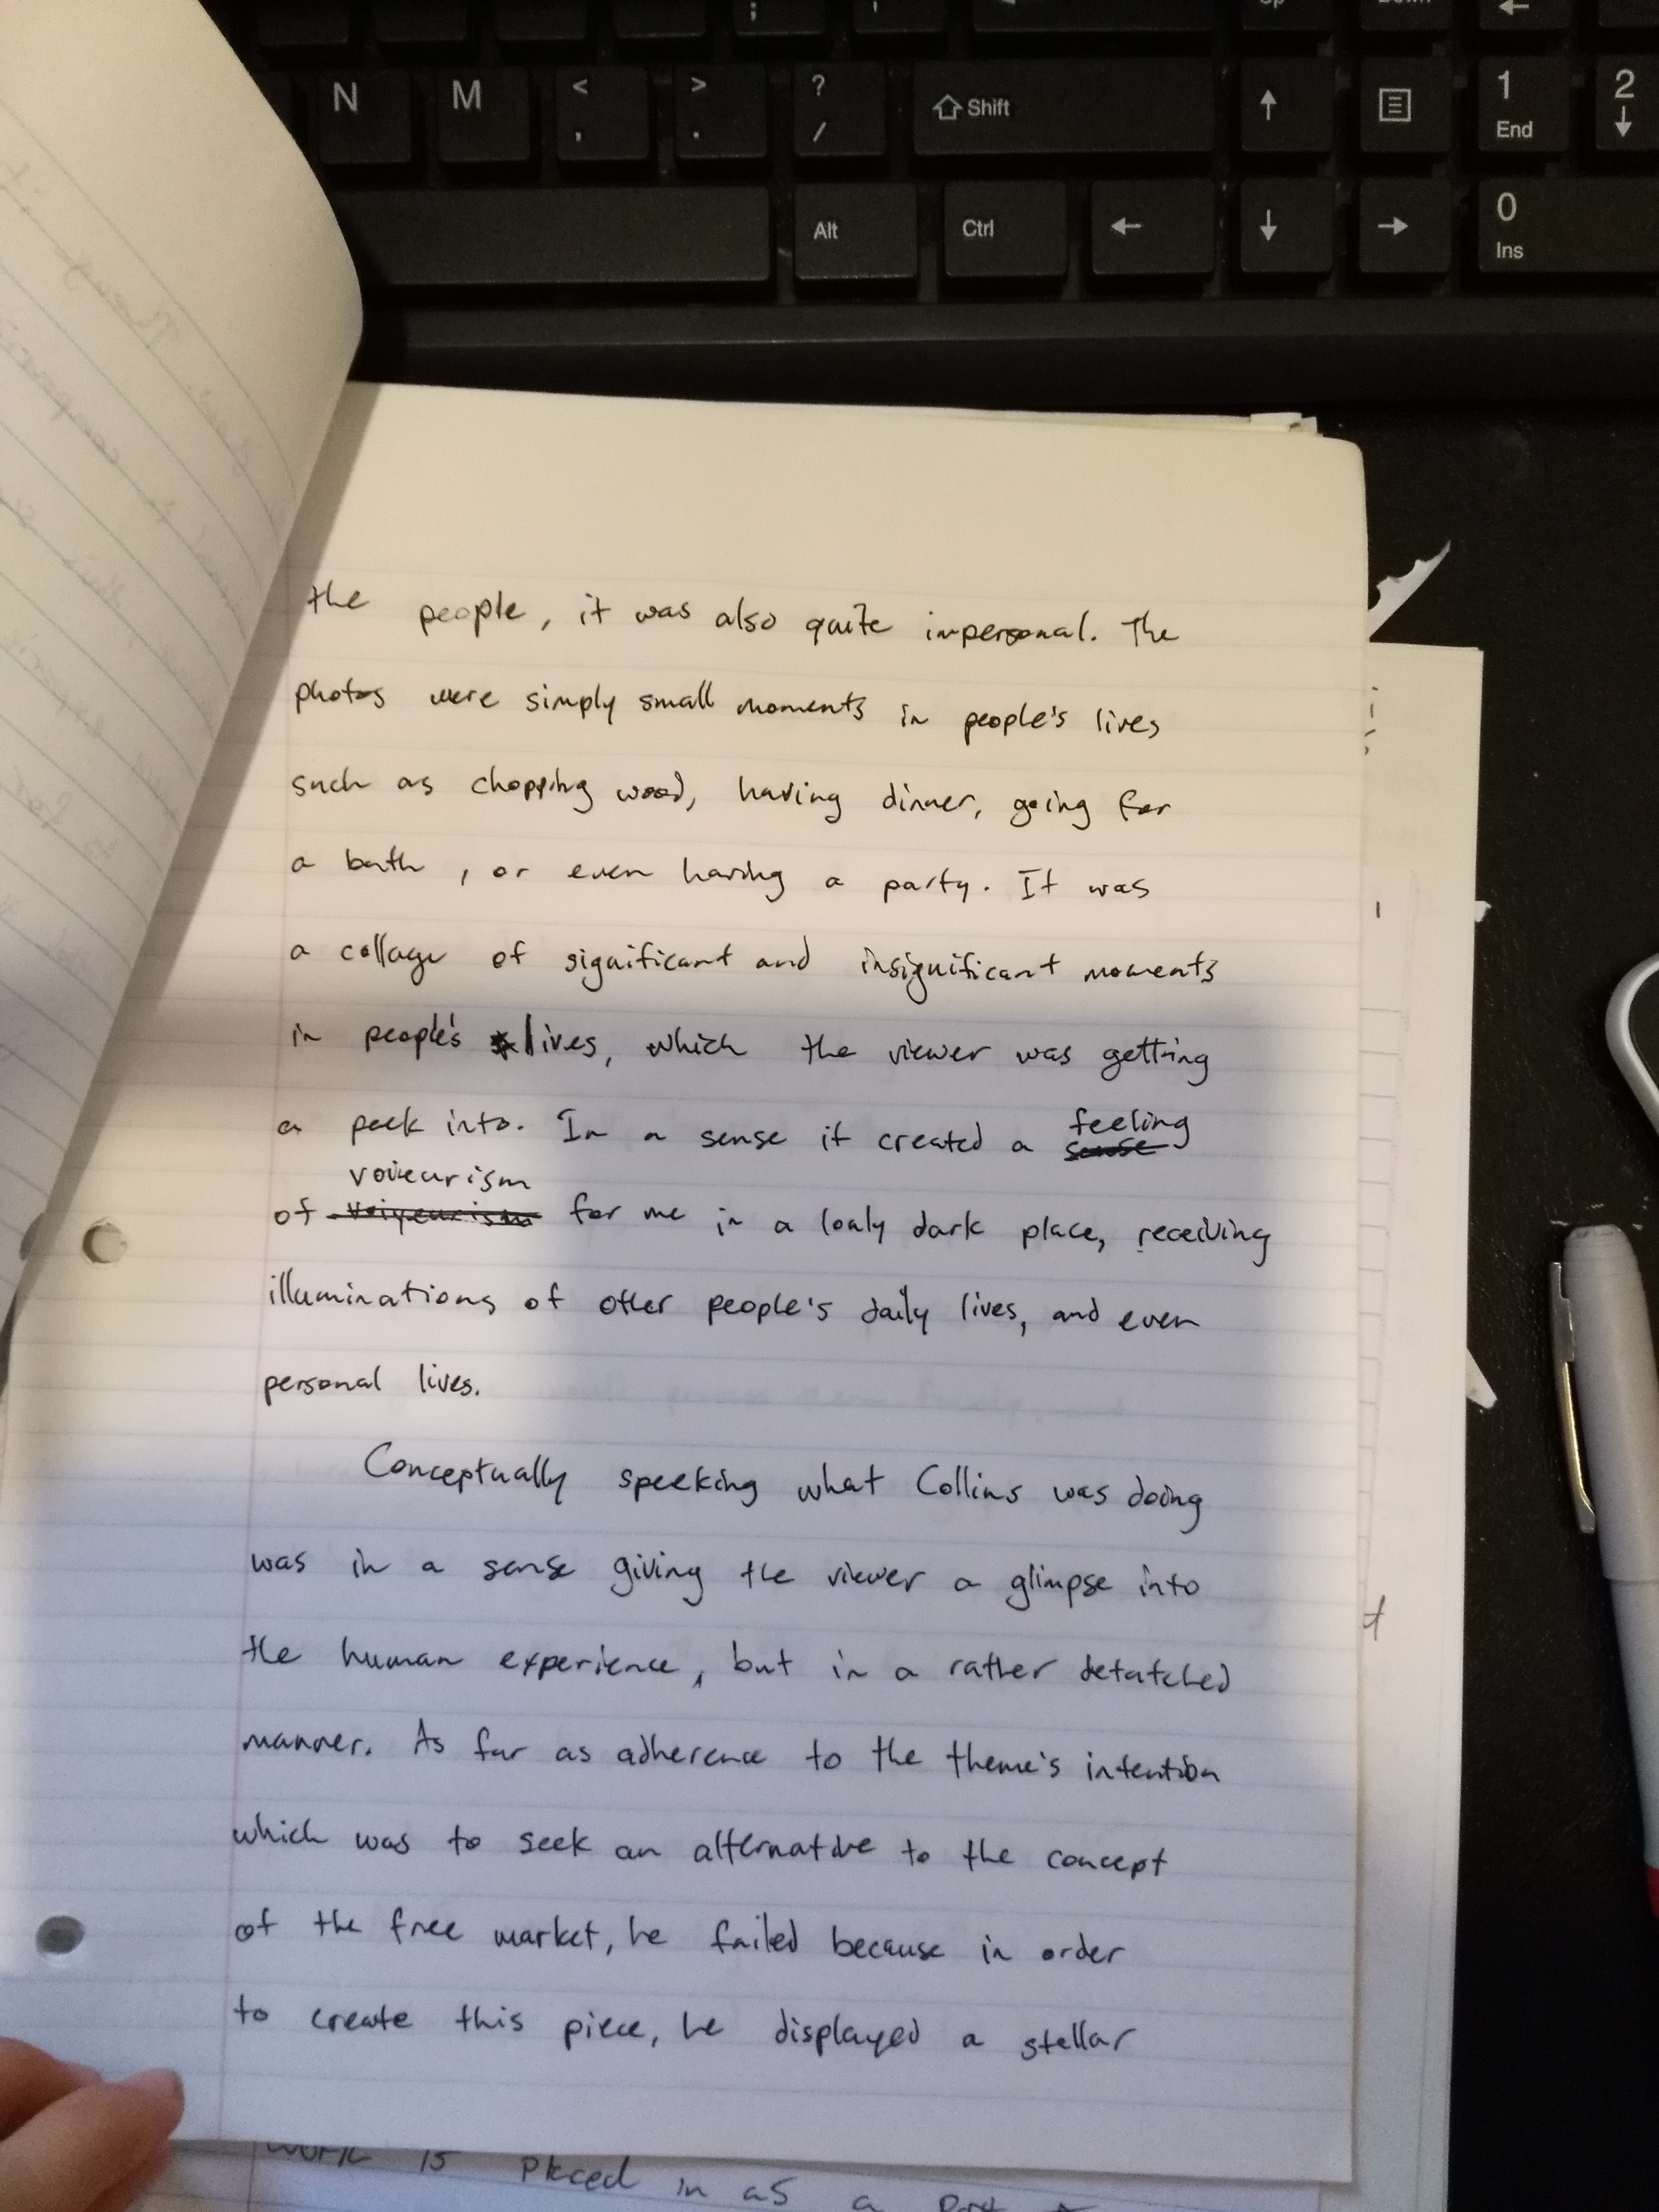 N M < , > . ? / Shift ↑ 1 End 2 ↓
Alt Ctrl ← ↓ → 0 Ins
the people, it was also quite impersonal. The
photos were simply small moments in people's lives
such as chopping wood, having dinner, going for
a bath, or even having a party. It was
a collage of significant and insignificant moments
in people's lives, which the viewer was getting
a peek into. In a sense it created a feeling
sense
voieurism
of voiyeurism for me in a lonly dark place, receiving
illuminations of other people's daily lives, and even
personal lives.
Conceptually speeking what Collins was doing
was in a sense giving the viewer a glimpse into
the human experience, but in a rather detatched
manner. As far as adherence to the theme's intention
which was to seek an alternative to the concept
of the free market, he failed because in order
to create this piece, he displayed a stellar
work is placed in as a